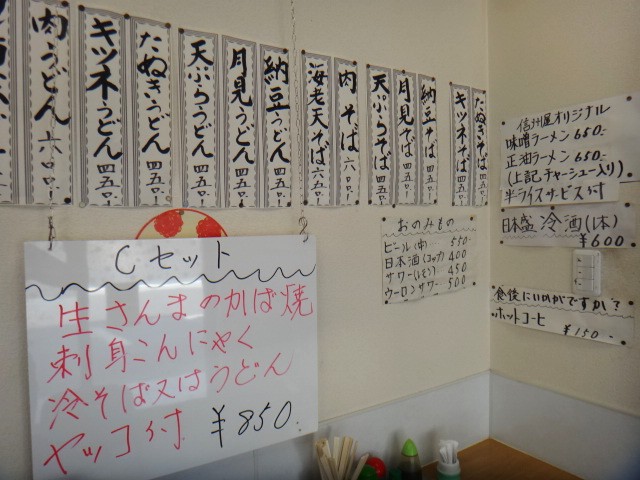 肉うどん 六〇〇
キツネうどん 四五〇
たぬきうどん 四五〇
天ぷらうどん 四五〇
月見うどん 四五〇
納豆うどん 四五〇
海老天そば 六五〇
肉そば 六〇〇
天ぷらそば 四五〇
月見そば 四五〇
納豆そば 四五〇
キツネそば 四五〇
たぬきそば 四五〇
Cセット
生さんまのかば焼
刺身こんにゃく
冷そば又はうどん
ヤッコ付 ¥850.
おのみもの
ビール(中) 550
日本酒(コップ) 400
サワー(レモン) 450
ウーロンサワー 500
信州屋オリジナル
味噌ラーメン 650-
正油ラーメン 650-
(上記チャーシュー入り)
半ライスサービス付
日本盛 冷酒(1本)
¥600
食後にいかがですか?
ホットコーヒ
¥150-